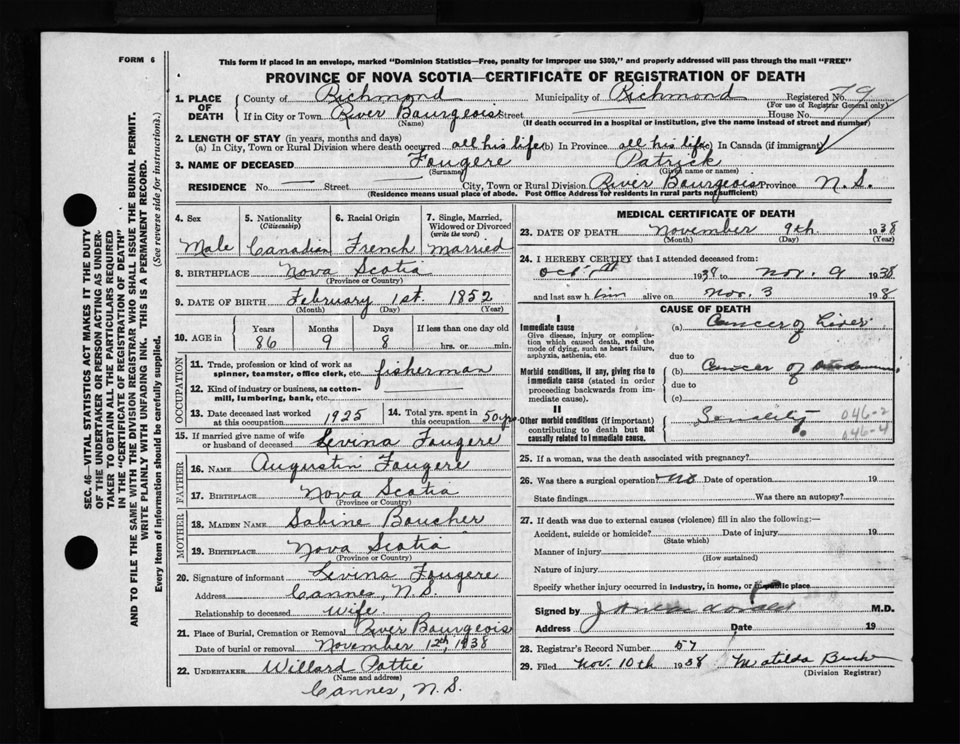 FORM 6
This form if placed in an envelope, marked "Dominion Statistics—Free, penalty for improper use $300," and properly addressed will pass through the mail "FREE"
PROVINCE OF NOVA SCOTIA—CERTIFICATE OF REGISTRATION OF DEATH
1. PLACE OF DEATH County of Richmond Municipality of Richmond Registered No. 79
(For use of Registrar General only)
If in City or Town River Bourgeois Street House No.
(Name) (If death occurred in a hospital or institution, give the name instead of street and number)
2. LENGTH OF STAY (in years, months and days)
(a) In City, Town or Rural Division where death occurred all his life (b) In Province all his life (c) In Canada (if immigrant)
3. NAME OF DECEASED Fougere Patrick
(Surname) (Given name or names)
RESIDENCE No. — Street — City, Town or Rural Division River Bourgeois Province N.S.
(Residence means usual place of abode. Post Office Address for residents in rural parts not sufficient)
4. Sex 5. Nationality (Citizenship) 6. Racial Origin 7. Single, Married, Widowed or Divorced (write the word)
Male Canadian French married
8. BIRTHPLACE Nova Scotia
(Province or Country)
9. DATE OF BIRTH February 1st. 1852
(Month) (Day) (Year)
10. AGE in Years Months Days If less than one day old
86 9 8 hrs. or min.
OCCUPATION
11. Trade, profession or kind of work as spinner, teamster, office clerk, etc. fisherman
12. Kind of industry or business, as cotton-mill, lumbering, bank, etc.
13. Date deceased last worked at this occupation 1925 14. Total yrs. spent in this occupation 50 yrs
15. If married give name of wife or husband of deceased Levina Fougere
FATHER
16. NAME Augustin Fougere
17. BIRTHPLACE Nova Scotia
(Province or Country)
MOTHER
18. MAIDEN NAME Sabine Boucher
19. BIRTHPLACE Nova Scotia
(Province or Country)
20. Signature of informant Levina Fougere
Address Cannes, N.S.
Relationship to deceased wife
21. Place of Burial, Cremation or Removal River Bourgeois
Date of burial or removal November 12th, 1938
22. UNDERTAKER Willard Pattie
(Name and address)
Cannes, N.S.
MEDICAL CERTIFICATE OF DEATH
23. DATE OF DEATH November 9th 1938
(Month) (Day) (Year)
24. I HEREBY CERTIFY that I attended deceased from:
Oct. 1938 to Nov. 9 1938
and last saw him alive on Nov. 3 1938
CAUSE OF DEATH
I
Immediate cause (a) Cancer of Liver
Give disease, injury or complication which caused death, not the mode of dying, such as heart failure, asphyxia, asthenia, etc.
due to
Morbid conditions, if any, giving rise to immediate cause (stated in order proceeding backwards from immediate cause). (b) Cancer of
due to
(c)
II
Other morbid conditions (if important) contributing to death but not causally related to immediate cause. Senility 046-2
046-4
25. If a woman, was the death associated with pregnancy?
26. Was there a surgical operation? No Date of operation 19
State findings Was there an autopsy?
27. If death was due to external causes (violence) fill in also the following:—
Accident, suicide or homicide? Date of injury 19
(State which)
Manner of injury
(How sustained)
Nature of injury
Specify whether injury occurred in industry, in home, or in public place
Signed by M.D.
Address Date 19
28. Registrar's Record Number 57
29. Filed Nov. 10th 1938 Matilda
(Division Registrar)
SEC. 46—VITAL STATISTICS ACT MAKES IT THE DUTY
OF THE UNDERTAKER OR PERSON ACTING AS UNDER-
TAKER TO OBTAIN ALL THE PARTICULARS REQUIRED
IN THE "CERTIFICATE OF REGISTRATION OF DEATH"
AND TO FILE THE SAME WITH THE DIVISION REGISTRAR WHO SHALL ISSUE THE BURIAL PERMIT.
WRITE PLAINLY WITH UNFADING INK. THIS IS A PERMANENT RECORD.
Every item of information should be carefully supplied. (See reverse side for instructions).